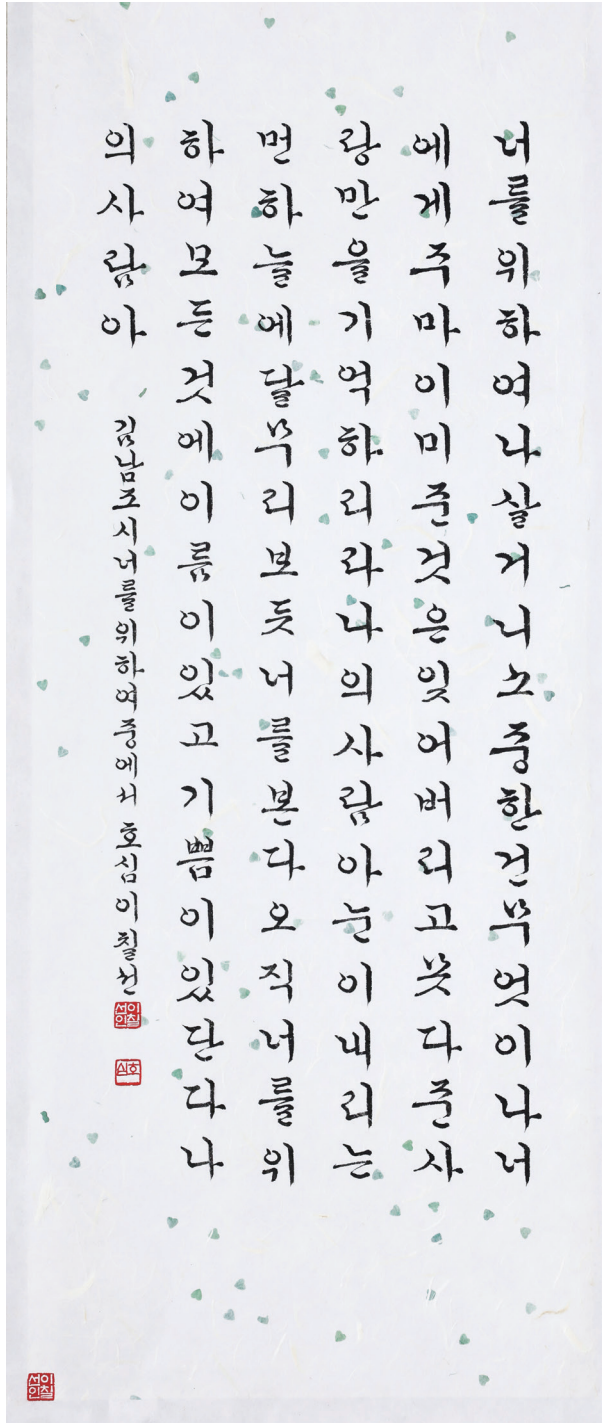 너를위하여나살거니소중한건무엇이나너
에게주마이미준것은잊어버리고못다준사
랑만을기억하리라나의사람아눈이내리는
먼하늘에달무리보듯너를본다오직너를위
하여모든것에이름이있고기쁨이있단다나
의사람아
김남조시너를위하여중에서 호심이칠선
이칠선인
호심
이칠선인